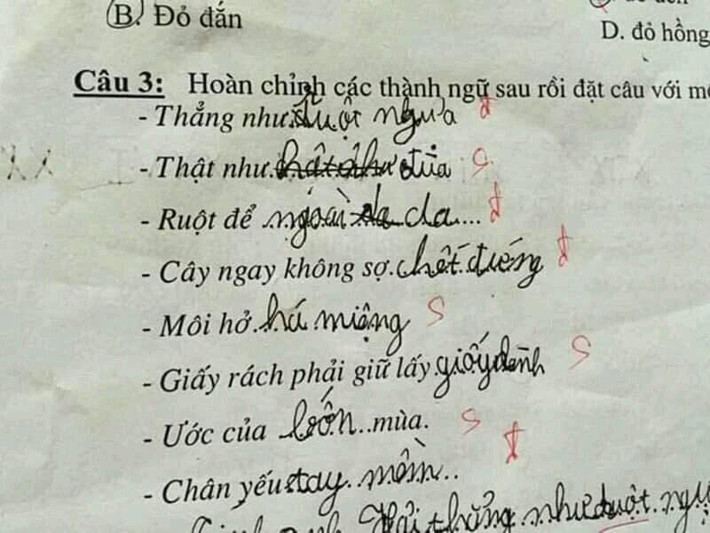 B. Đỏ đắn
D. đỏ hồng
Câu 3: Hoàn chỉnh các thành ngữ sau rồi đặt câu với
- Thẳng như ruột ngựa đ
- Thật như đùa s
- Ruột để ngoài da.... đ
- Cây ngay không sợ chết đứng đ
- Môi hở há miệng s
- Giấy rách phải giữ lấy s
- Ước của bốn..mùa. s
- Chân yếu tay mềm.. đ
thẳng như ruột